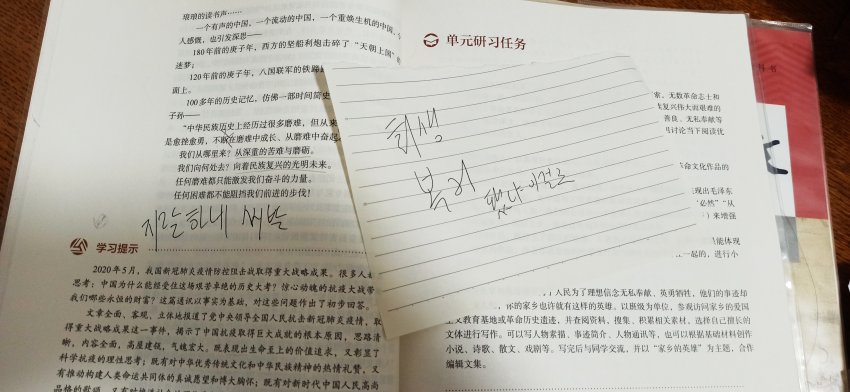 琅琅的读书声……
一个有声的中国，一个流动的中国，一个重焕生机的中国，
人感慨，也引发深思——
180年前的庚子年，西方的坚船利炮击碎了“天朝上国”
迷梦；
120年前的庚子年，八国联军的铁蹄
面上。
100多年的历史记忆，仿佛一部时间简史
子孙——
“中华民族历史上经历过很多磨难，但从来
是愈挫愈勇，不断在磨难中成长、从磨难中奋起。
我们从哪里来？从深重的苦难与磨砺。
我们向何处去？向着民族复兴的光明未来。
任何磨难都只能激发我们奋斗的力量。
任何困难都不能阻挡我们前进的步伐！
지랄하네 씨발
学习提示
2020年5月，我国新冠肺炎疫情防控阻击战取得重大战略成果。很多人
思考：中国为什么能经受住这场艰苦卓绝的历史大考？惊心动魄的抗疫大战带
我们哪些永恒的财富？这篇通讯以事实为基础，对这些问题作出了初步回答。
文章全面、客观、立体地报道了党中央领导全国人民抗击新冠肺炎疫情，取
得重大战略成果这一事件，揭示了中国抗疫取得巨大成就的根本原因，思路清
晰，内容全面，高屋建瓴，气魄宏大。既表现出生命至上的价值追求，又彰显了
科学抗疫的理性思考；既有对中华优秀传统文化和中华民族精神的热情礼赞，又
有推动构建人类命运共同体的真诚愿望和博大胸怀；既有对新时代中国人民高尚
品格的歌颂，又有对
희생
복기
됐나 이걸로
单元研习任务
索、无数革命志士和
族复兴伟大而艰难的
善良、无私奉献等
讨论当下阅读优
命文化作品的
现出毛泽东
必然”“从
）来增强
能体现
一起的，进行小
了人民为了理想信念无私奉献、英勇牺牲，他们的事迹却
你的家乡也许就有这样的英雄。以班级为单位，参观访问家乡的爱国
主义教育基地或革命历史遗迹，并查阅资料，搜集、积累相关素材，选择自己擅长的
文体进行写作。可以写人物素描、事迹简介、人物通讯等，也可以根据基础材料创作
小说、诗歌、散文、戏剧等。写完后与同学交流，并以“家乡的英雄”为主题，合作
编辑文集。
科书